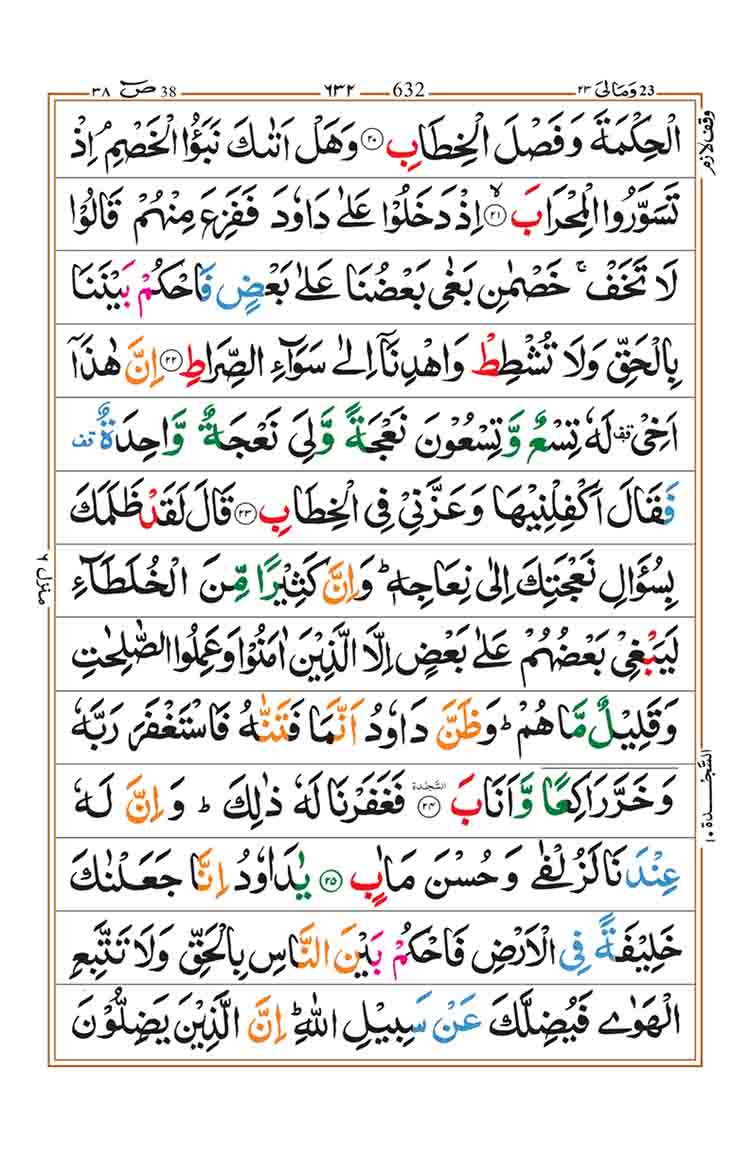 ٣٨ صٓ 38 ٦٣٢ 632 ٢٣ وَمَالِیَ 23
الْحِكْمَةَ وَفَصْلَ الْخِطَابِ ۝۲۰ وَهَلْ اَتٰىكَ نَبَؤُا الْخَصْمِ ۘ اِذْ
وقف لازم
تَسَوَّرُوا الْمِحْرَابَ ۝۲۱ ۙ اِذْ دَخَلُوْا عَلٰى دَاوٗدَ فَفَزِعَ مِنْهُمْ قَالُوْا
لَا تَخَفْ ۚ خَصْمٰنِ بَغٰى بَعْضُنَا عَلٰى بَعْضٍ فَاحْكُمْ بَيْنَنَا
بِالْحَقِّ وَلَا تُشْطِطْ وَاهْدِنَاۤ اِلٰى سَوَآءِ الصِّرَاطِ ۝۲۲ اِنَّ هٰذَاۤ
اَخِیْ قف لَهٗ تِسْعٌ وَّتِسْعُوْنَ نَعْجَةً وَّلِیَ نَعْجَةٌ وَّاحِدَةٌ قف
فَقَالَ اَكْفِلْنِيْهَا وَعَزَّنِیْ فِی الْخِطَابِ ۝۲۳ قَالَ لَقَدْ ظَلَمَكَ
بِسُؤَالِ نَعْجَتِكَ اِلٰى نِعَاجِهٖ ؕ وَاِنَّ كَثِيْرًا مِّنَ الْخُلَطَآءِ
منزل ٦
لَيَبْغِیْ بَعْضُهُمْ عَلٰى بَعْضٍ اِلَّا الَّذِيْنَ اٰمَنُوْا وَعَمِلُوا الصّٰلِحٰتِ
وَقَلِيْلٌ مَّا هُمْ ؕ وَظَنَّ دَاوٗدُ اَنَّمَا فَتَنّٰهُ فَاسْتَغْفَرَ رَبَّهٗ
وَخَرَّ رَاكِعًا وَّاَنَابَ ۝۲۴ السَّجْدَة فَغَفَرْنَا لَهٗ ذٰلِكَ ؕ وَاِنَّ لَهٗ
السَّجْدَة ۱۰
عِنْدَنَا لَزُلْفٰى وَحُسْنَ مَاٰبٍ ۝۲۵ يٰدَاوٗدُ اِنَّا جَعَلْنٰكَ
خَلِيْفَةً فِی الْاَرْضِ فَاحْكُمْ بَيْنَ النَّاسِ بِالْحَقِّ وَلَا تَتَّبِعِ
الْهَوٰى فَيُضِلَّكَ عَنْ سَبِيْلِ اللّٰهِ ؕ اِنَّ الَّذِيْنَ يَضِلُّوْنَ